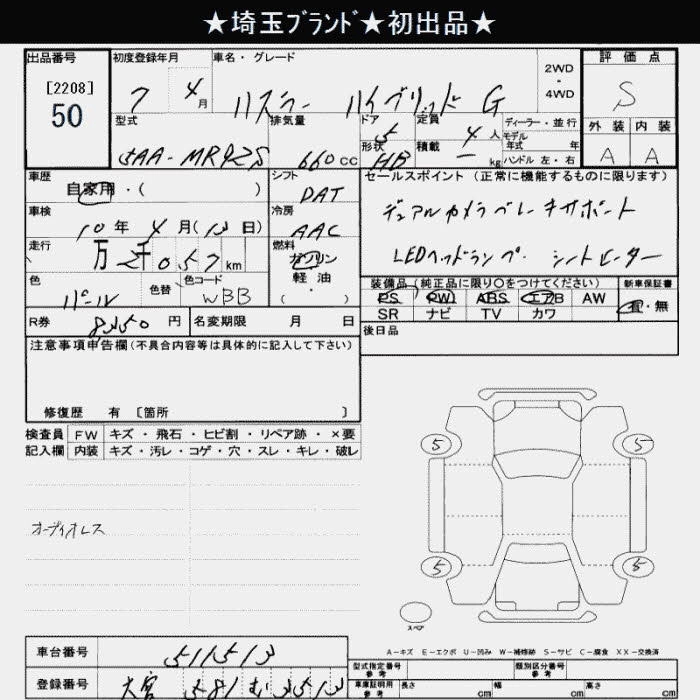 ★埼玉ﾌﾞﾗﾝﾄﾞ★初出品★
出品番号 初度登録年月 車名・グレード 2WD・4WD 評価点
[2208]
50
7 4月 ハスラー ハイブリッド G S
型式 排気量 ドア 定員 ディーラー・並行 外装 内装
5AA-MR92S 660cc 5 4人 モデル年式 年
形状 積載 A A
HB - kg ハンドル 左・右
車歴 シフト セールスポイント (正常に機能するものに限ります)
自家用・( ) DAT
車検 冷房 デュアルカメラブレーキサポート
10年4月(13日) AAC
走行 燃料 LEDヘッドランプ・シートヒーター
万 千 057km ガソリン
軽油・( )
色 色替 色コード 装備品 (純正品に限り〇をつけてください) 新車保証書
パール WBB PS PW ABS エアB AW 有・無
SR ナビ TV カワ
R券 円 名変期限 月 日 後日品
注意事項申告欄 (不具合内容等は具体的に記入して下さい)
修復歴 有 〔箇所 〕
検査員 FW キズ・飛石・ヒビ割・リペア跡・×要
記入欄 内装 キズ・汚レ・コゲ・穴・スレ・キレ・破レ
オーディオレス
5 5
5 5
スペア
A-キズ E-エクボ U-凹み W-補修跡 S-サビ C-腐食 XX-交換済
車台番号 511513
型式指定番号 参考 類別区分番号 参考
登録番号 大宮 581 む 3513
車庫証明用 参考 長さ cm 幅 cm 高さ cm